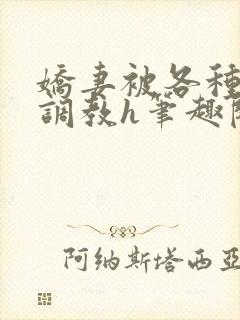 嬌妻被各種
調教h筆趣
阿纳斯塔西亚